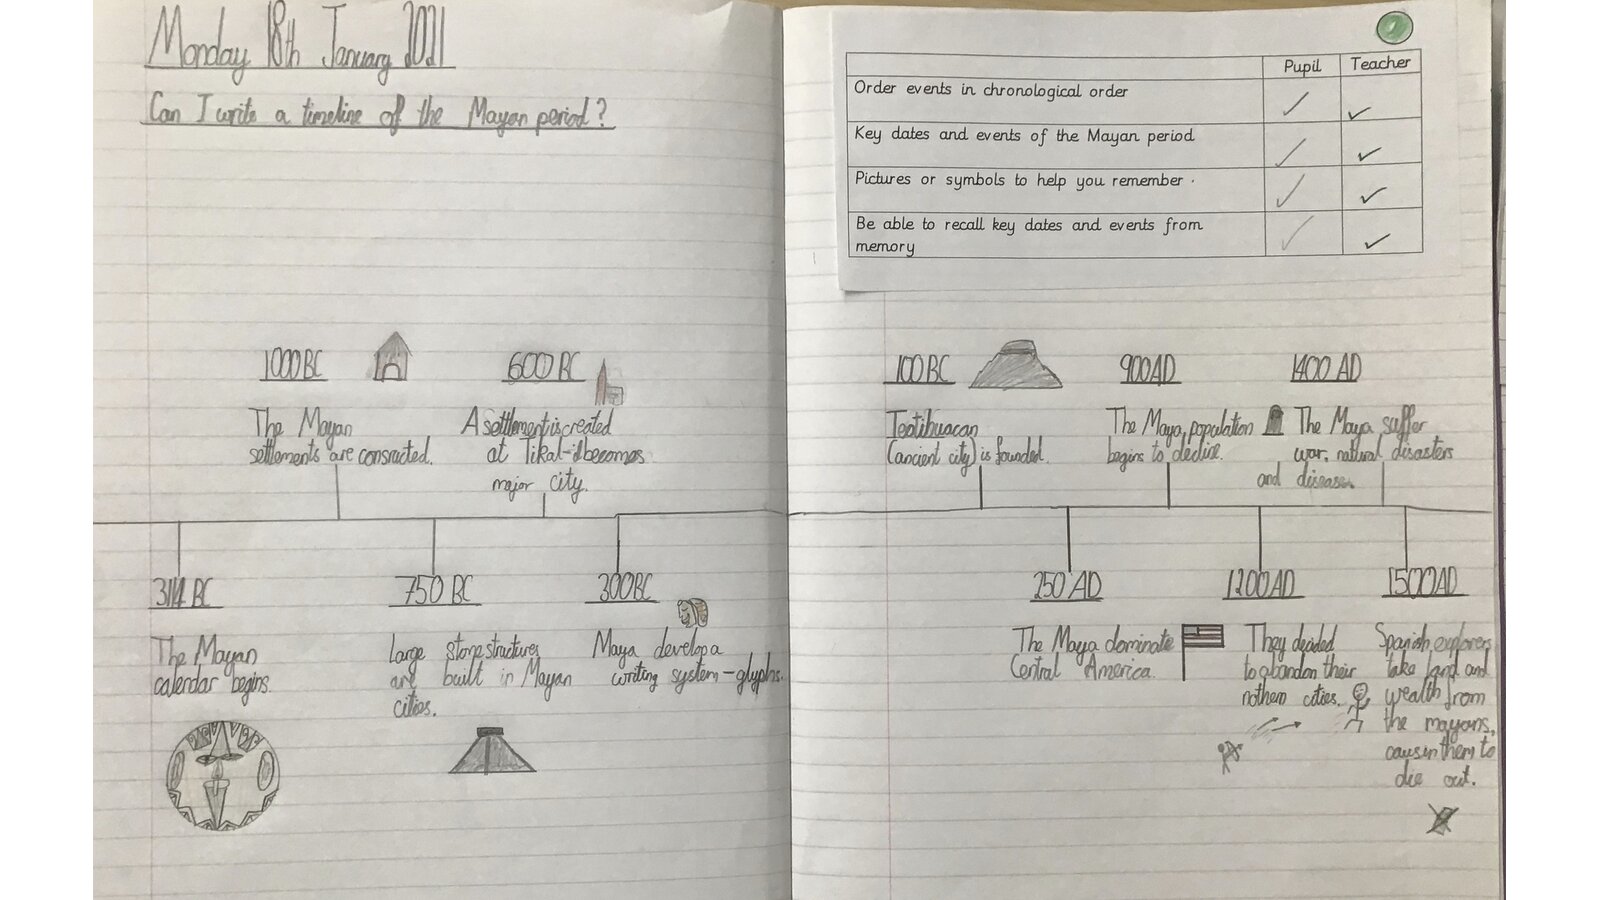 Monday 18th January 2021
Can I write a timeline of the Mayan period?
Pupil
Teacher
Order events in chronological order
Key dates and events of the Mayan period
Pictures or symbols to help you remember
Be able to recall key dates and events from
memory
1000BC
The Mayan
settlements are consructed.
600BC
A settlement is created
at Tikal-it becomes
major city.
100BC
Teotihuacan
(ancient city) is founded.
900AD
The Maya population
begins to decline.
1400 AD
The Maya suffer
war, natural disasters
and disease.
3114 BC
The Mayan
calendar begins.
750 BC
Large stone structures
are built in Mayan
cities.
300BC
Maya develop a
writing system-glyphs.
250 AD
The Maya dominate
Central America.
1200AD
They decided
to abandon their
nothern cities.
1500AD
Spanish explorers
take land and
wealth from
the mayans,
causin them to
die out.